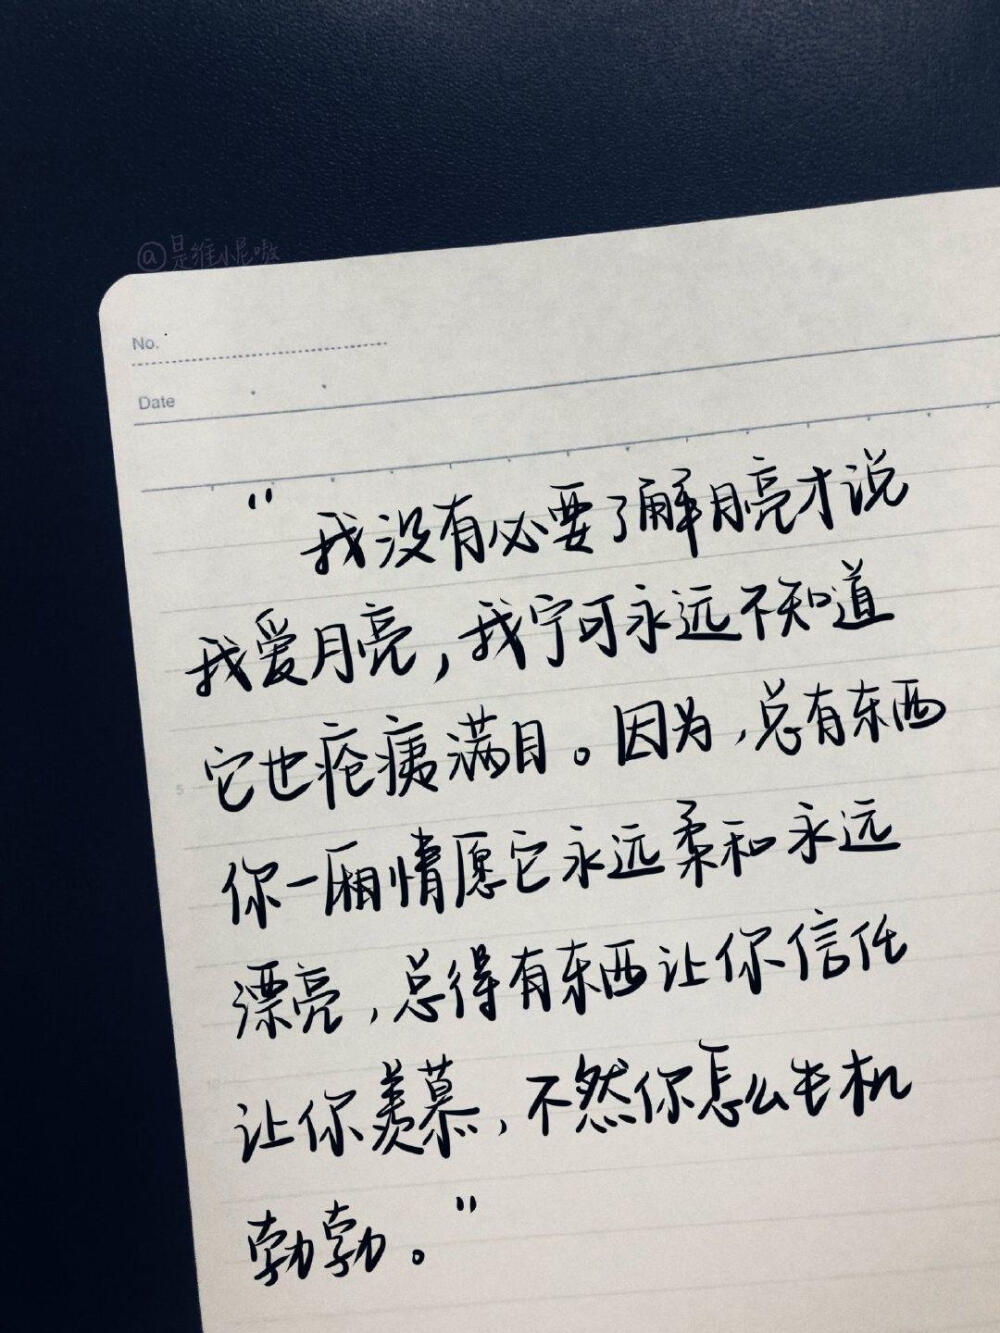 @是维小尼嗷
No.
Date
“我没有必要了解月亮才说
我爱月亮，我宁可永远不知道
它也疮痍满目。因为，总有东西
5
你一厢情愿它永远柔和永远
漂亮，总得有东西让你信任
10
让你羡慕，不然你怎么生机
勃勃。”